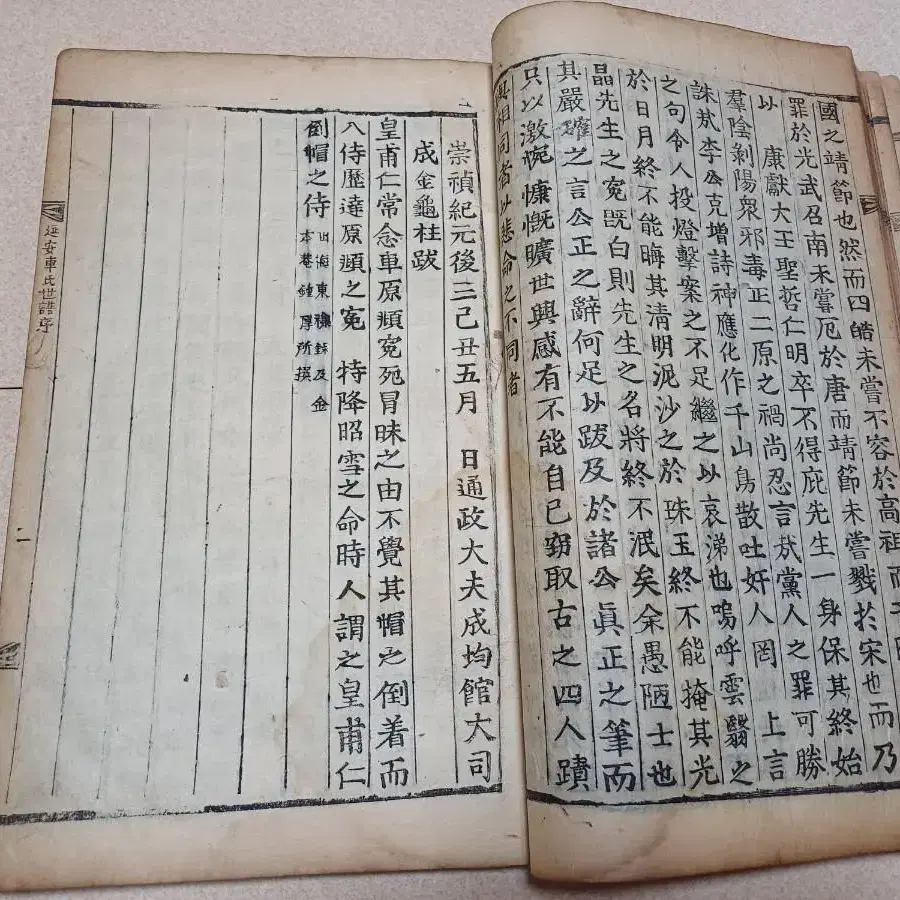 國之靖節也然而四皓未嘗不容於高祖而
罪於光武召南未嘗厄於唐而靖節未嘗戮於宋也而乃
以 康獻大王聖哲仁明卒不得庇先生一身保其終始
羣陰剝陽衆邪毒正二原之禍尚忍言哉黨人之罪可勝
誅哉李公克增詩神應化作千山鳥散吐奸人罔 上言
之句令人投燈擊案之不足繼之以哀涕也嗚呼雲翳之
於日月終不能晦其清明泥沙之於珠玉終不能掩其光
晶先生之寃旣白則先生之名將終不泯矣余愚陋士也
其嚴確之言公正之辭何足以跋及於諸公眞正之筆而
只以激惋慷慨曠世興感有不能自已窃取古之四人蹟
與相同者以悲命之不同者
崇禎紀元後三己丑五月 日通政大夫成均館大司
成金龜柱跋
皇甫仁常念車原頫寃死冒昧之由不覺其帽之倒着而
入侍歷達原頫之寃 特降昭雪之命時人謂之皇甫仁
倒帽之侍 出海東 及金
本菴鍾厚所撰
延安車氏世譜序
二